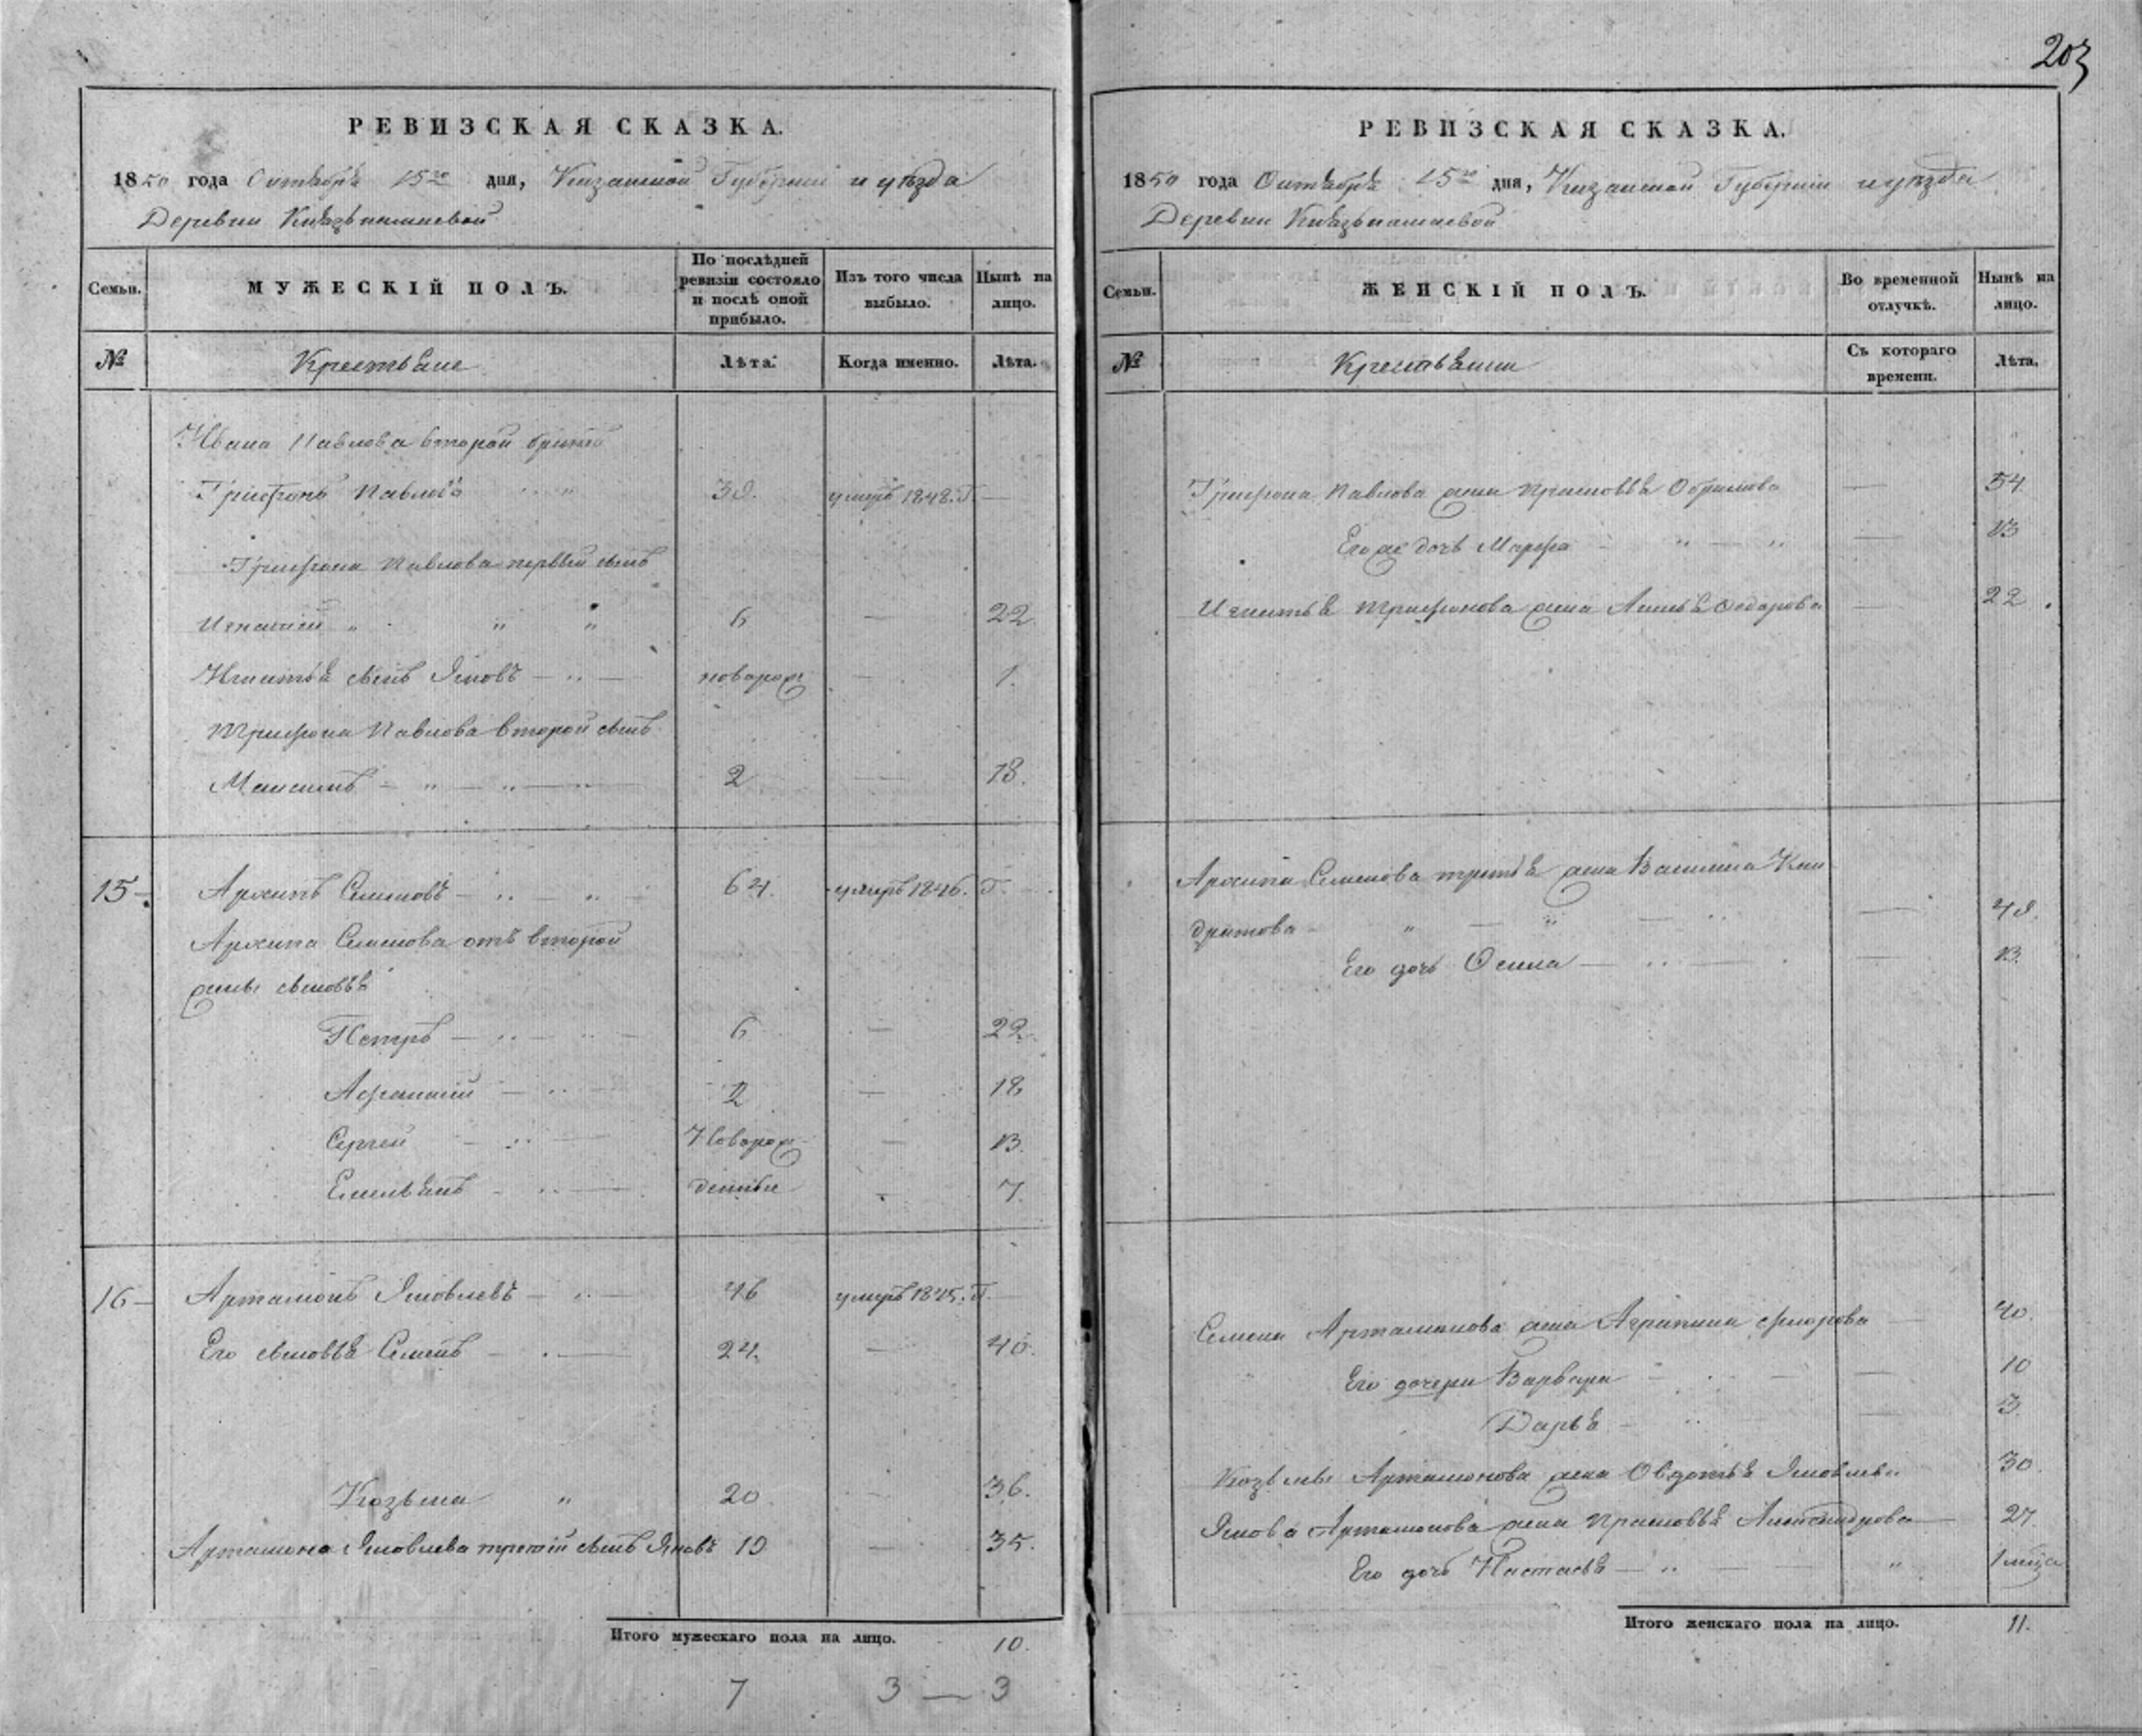 203
РЕВИЗСКАЯ СКАЗКА.
1850 года Октября 15го дня, Казанской Губернiи и уѣзда
Деревни Князь
Семьи.
МУЖЕСКIЙ ПОЛЪ.
По послѣдней ревизiи состояло и послѣ оной прибыло.
Изъ того числа выбыло.
Нынѣ на лицо.
№
Крестьяне
Лѣта.
Когда именно.
Лѣта.
Ивана Павлова второй братъ
Трифонъ Павловъ 39. умеръ 1848. Г.
Трифона Павлова первый сынъ
Игнатiй 6 — 22.
Игнатья сынъ Яковъ — новорож — 1.
Трифона Павлова второй сынъ
Максимъ 2 — 18.
15 — Архипъ Семеновъ — 64. умеръ 1846. Г.
Архипа Семенова отъ второй
жены сыновья
Петръ — 6 — 22.
Афанасiй — 2 — 18
Сергей — Новорож — 13.
Емельянъ — денные 7.
16 — Артамонъ Яковлевъ — 46 умеръ 1845. Г.
Его сыновья Семенъ — 24. — 40.
Козьма 20 36.
Артамона Яковлева третiй сынъ Яковъ 19 — 35.
Итого мужескаго пола на лицо. 10.
7 3 — 3
РЕВИЗСКАЯ СКАЗКА.
1850 года Октября 15го дня, Казанской Губернiи и уѣзда
Деревни Князь
Семьи.
ЖЕНСКIЙ ПОЛЪ.
Во временной отлучкѣ.
Нынѣ на лицо.
№
Крестьянки
Съ котораго времени.
Лѣта.
Трифона Павлова жена Прасковья — 54.
Его же дочь Марфа — 13
Игнатья Трифонова жена Федорова — 22.
Архипа Семенова третья жена Василиса Кон
дратова — 49.
Его дочь — 13.
Семена Артамонова жена Агрипина — 40.
Его дочери Варвара — 10
Дарья — 3.
Козьмы Артамонова жена Овдотья Яковлева 30.
Якова Артамонова жена Прасковья Александрова — 27
Его дочь Настасья — 1 мѣся
Итого женскаго пола на лицо. 11.